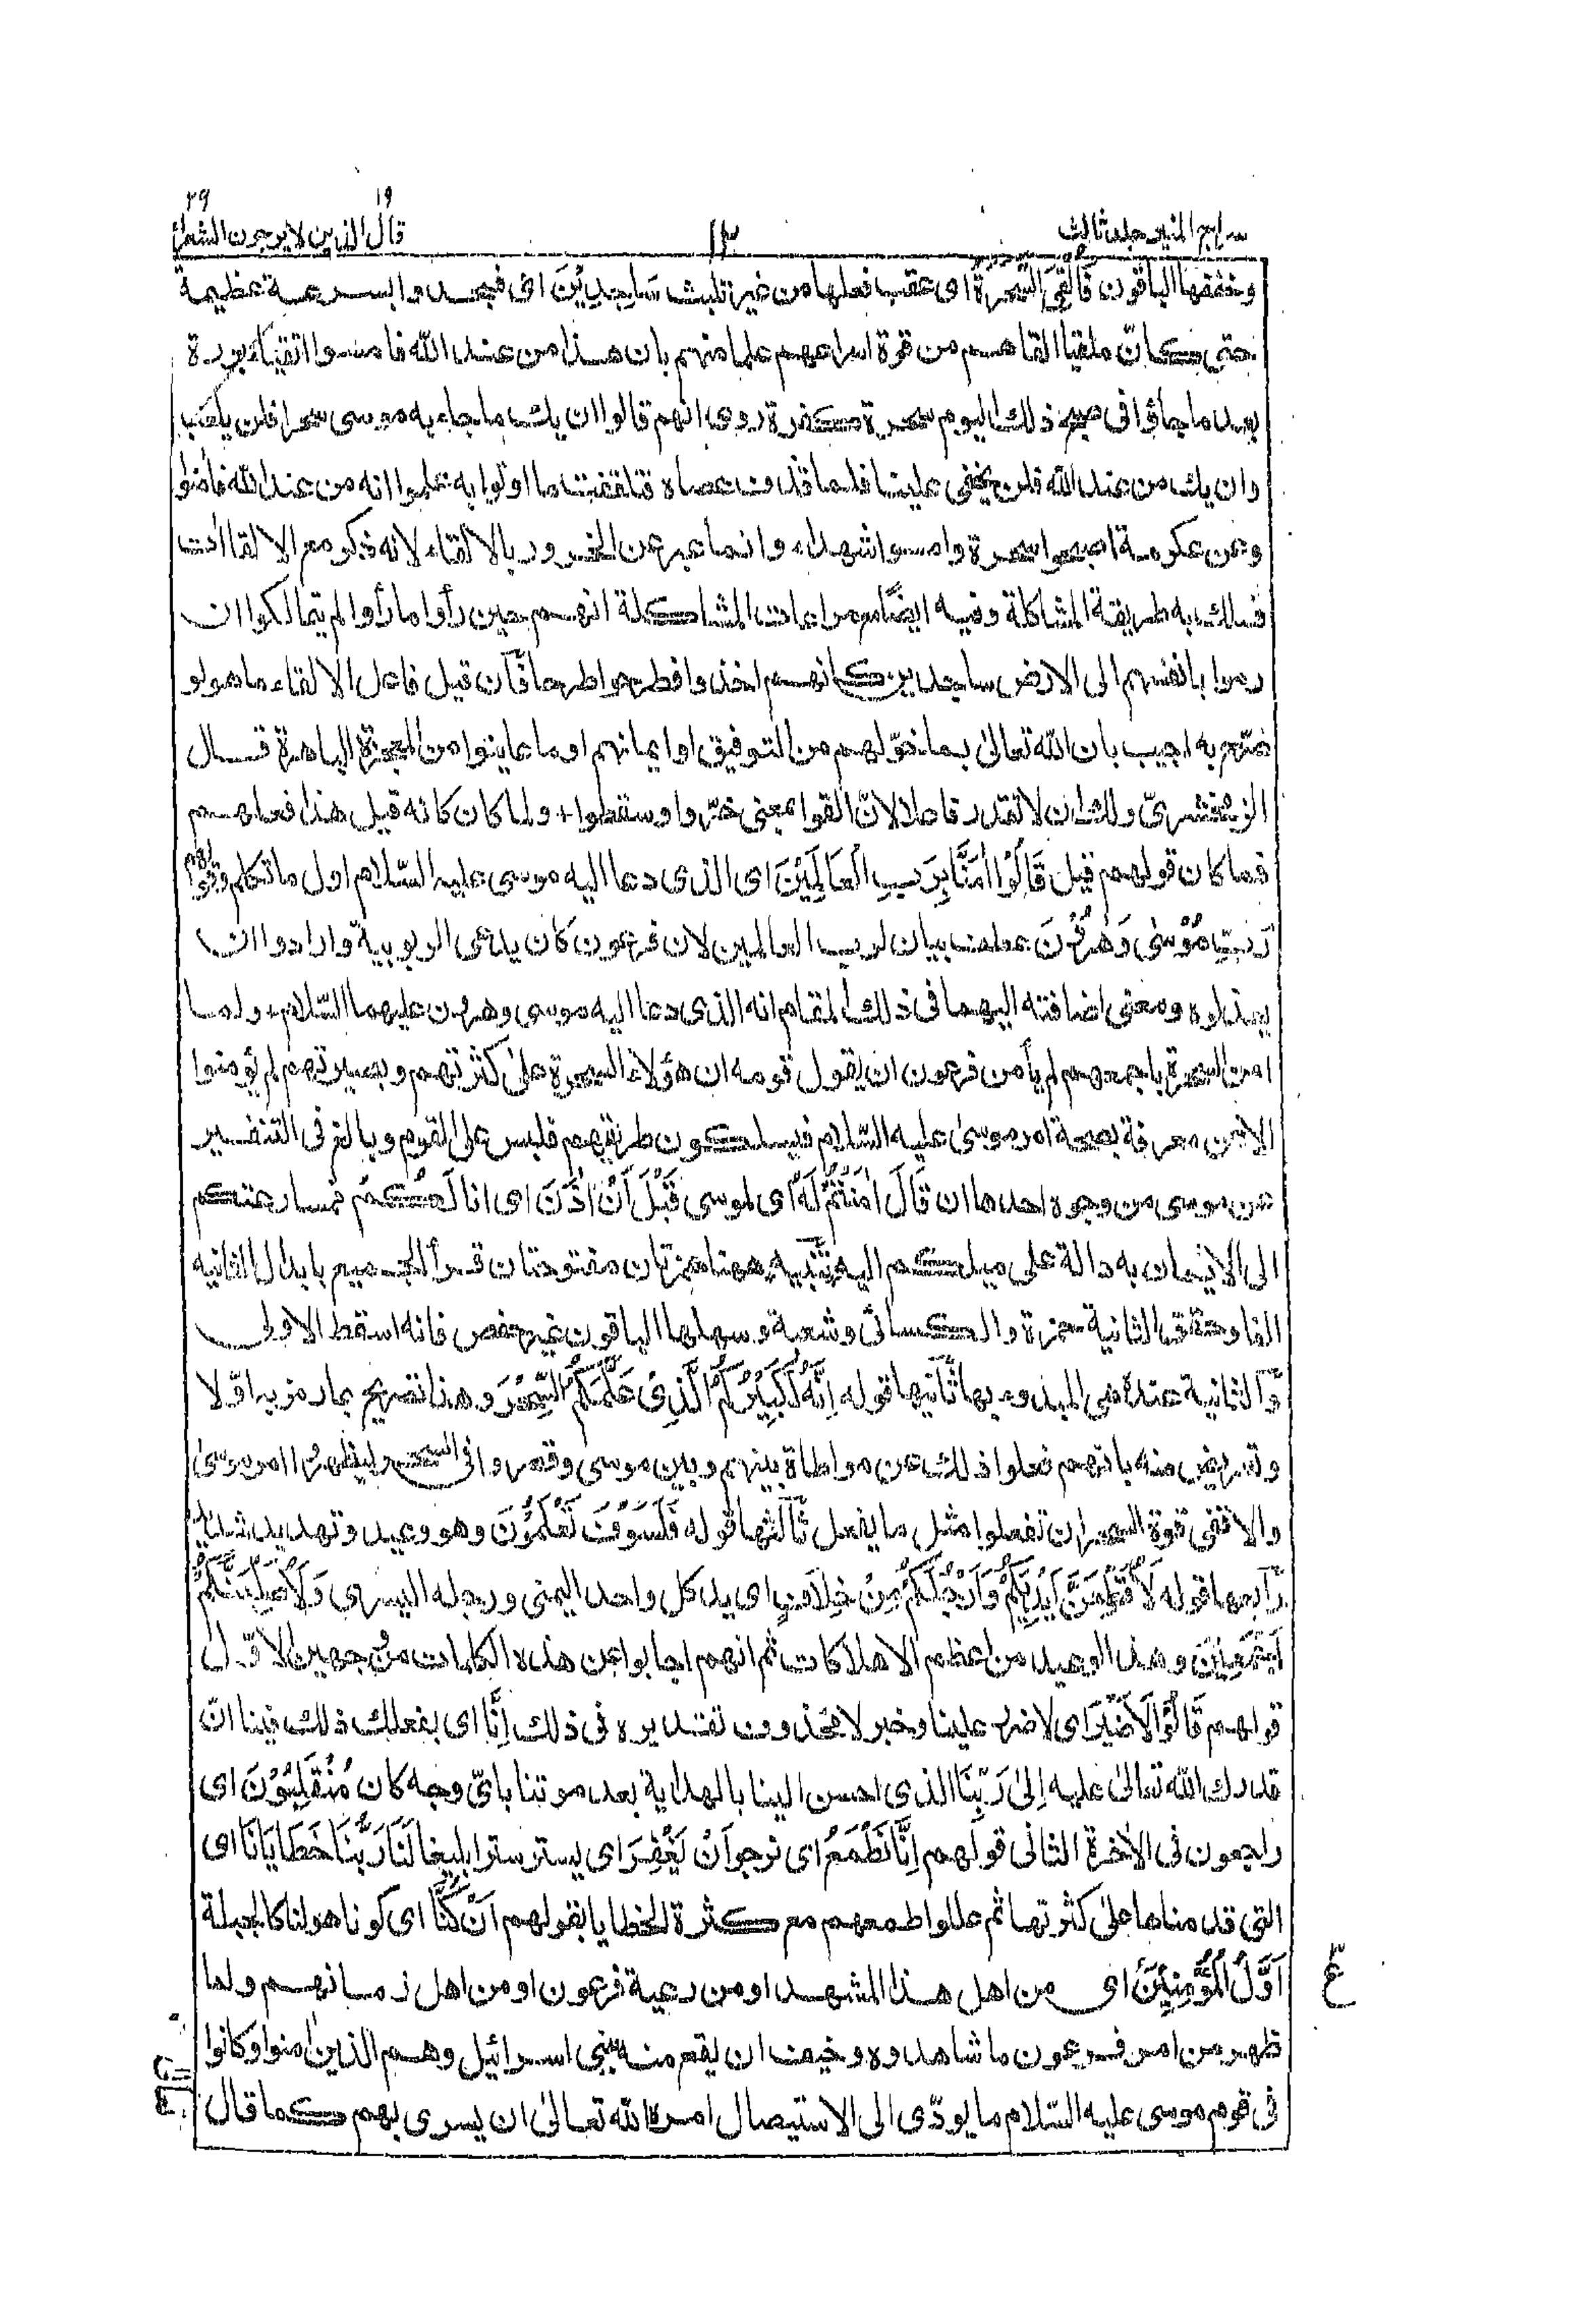 سراج المنير جلد ثالث
١٣
قال الذين لا يرجون الشعراء
١٩
٢٦
وخففها الباقون فَأُلْقِيَ السَّحَرَةُ اى عقب فعلها من غير تلبث سَاجِدِيْنَ اى فسجدوا بسرعة عظيمة
حتى كانّ ملقيا القاهم من قوة اسراعهم علما منهم بان هذا من عند الله فامسوا اتقياء بررة
بعد ما جاؤا فى صبح ذلك اليوم سحرة كفرة روى انهم قالوا ان يك ما جاء به موسى سحرا فلن يغلب
وان يك من عند الله فلن يخفى علينا فلما قذف عصاه فتلقفت ما اتوا به علموا انه من عند الله فامنوا
وعن عكرمة اصبحوا سحرة وامسوا شهداء وانما عبر عن الخرور بالالقاء لانه ذكر مع الالقاات
فسلك به طريقة المشاكلة وفيه ايضًا مع مراعات المشاكلة انهم حين رأوا ما رأوا لم يتمالكوا ان
رموا بانفسهم الى الارض ساجدين كانهم اخذوا فطرحوا طرحا فَاٰن قيل فاعل الالقاء ما هو لو
صرح به اجيب بان الله تعالىٰ بما خوّلهم من التوفيق او ايمانهم او ما عاينوا من المعجزة الباهرة قال
الزمخشرىّ ولك ان لا تقدر فاعلا لانّ القوا بمعنى خرّوا وسقطوا + ولما كان كانه قيل هذا فعلهم
فما كان قولهم قيل قَالُوْا اٰمَنَّا بِرَبِّ الْعَالَمِيْنَ اى الذى دعا اليه موسى عليه السّلام اول ما تكلم وقولهم
رَبِّ مُوْسٰى وَهٰرُوْنَ عطف بيان لرب العالمين لان فرعون كان يدعى الربوبية وارادوا ان
يعزلوه ومعنى اضافته اليهما فى ذلك المقام انه الذى دعا اليه موسى وهرون عليهما السّلام + ولما
امن السحرة باجمعهم لم يأمن فرعون ان يقول قومه ان هؤلاء السحرة على كثرتهم وبصيرتهم لم يؤمنوا
الا عن معرفة بصحة امر موسىٰ عليه السّلام فيسلكون طريقهم فلبس على القوم وبالغ فى التنفير
عن موسى من وجوه احدها ان قَالَ اٰمَنْتُمْ لَهٗ اى لموسى قَبْلَ اَنْ اٰذَنَ اى انا لَكُمْ فمسارعتكم
الى الايمان به دالة على ميلكم اليه تَنْبِيه ههنا همزتان مفتوحتان قرأ الجميع بابدال الثانيه
الفا وحقق الثانية حمزة والكسائى وشعبة وسهلها الباقون غير حفص فانه اسقط الاولى
والثانية عنده هى المبدوء بها ثانيها قوله اِنَّهٗ لَكَبِيْرُكُمُ الَّذِىْ عَلَّمَكُمُ السِّحْرَ وهذا تصريح بما رمز به اوّلا
وتعريض منه بانهم فعلوا ذلك عن مواطاة بينهم وبين موسى وقصروا فى السحر ليظهروا امر موسىٰ
والا ففى قوة السحر ان تفعلوا مثل ما يفعل ثالثها قوله فَلَسَوْفَ تَعْلَمُوْنَ وهو وعيد وتهديد شديد
رابعها قوله لَاُقَطِّعَنَّ اَيْدِيَكُمْ وَاَرْجُلَكُمْ مِّنْ خِلَافٍ اى يد كل واحد اليمنى ورجله اليسرى وَلَاُصَلِّبَنَّكُمْ
اَجْمَعِيْنَ وهذا الوعيد من اعظم الاهلاكات ثم انهم اجابوا عن هذه الكلمات من وجهين الاول
قولهم قَالُوْا لَا ضَيْرَ اى لا ضرر علينا وخبر لا محذوف تقديره فى ذلك اِنَّا اى بفعلك ذلك فينا انّ
قدرك الله تعالىٰ عليه اِلىٰ رَبِّنَا الذى احسن الينا بالهداية بعد موتنا باىّ وجه كان مُنْقَلِبُوْنَ اى
راجعون فى الاٰخرة الثانى قولهم اِنَّا نَطْمَعُ اى نرجو اَنْ يَّغْفِرَ اى يستر سترا بليغا لَنَا رَبُّنَا خَطَايَانَا اى
التى قدمناها علىٰ كثرتها ثم عللوا طمعهم مع كثرة الخطايا بقولهم اَنْ كُنَّا اى كونا هو لنا كالجبلة
اَوَّلَ الْمُؤْمِنِيْنَ اى من اهل هذا المشهد او من رعية فرعون او من اهل زمانهم ولما
ظهر من امر فرعون ما شاهدوه وخيف ان يقع منه ببنى اسرائيل وهم الذين اٰمنوا وكانوا
فى قوم موسى عليه السّلام ما يودّى الى الاستيصال امره الله تعالىٰ ان يسرى بهم كما قال
ع